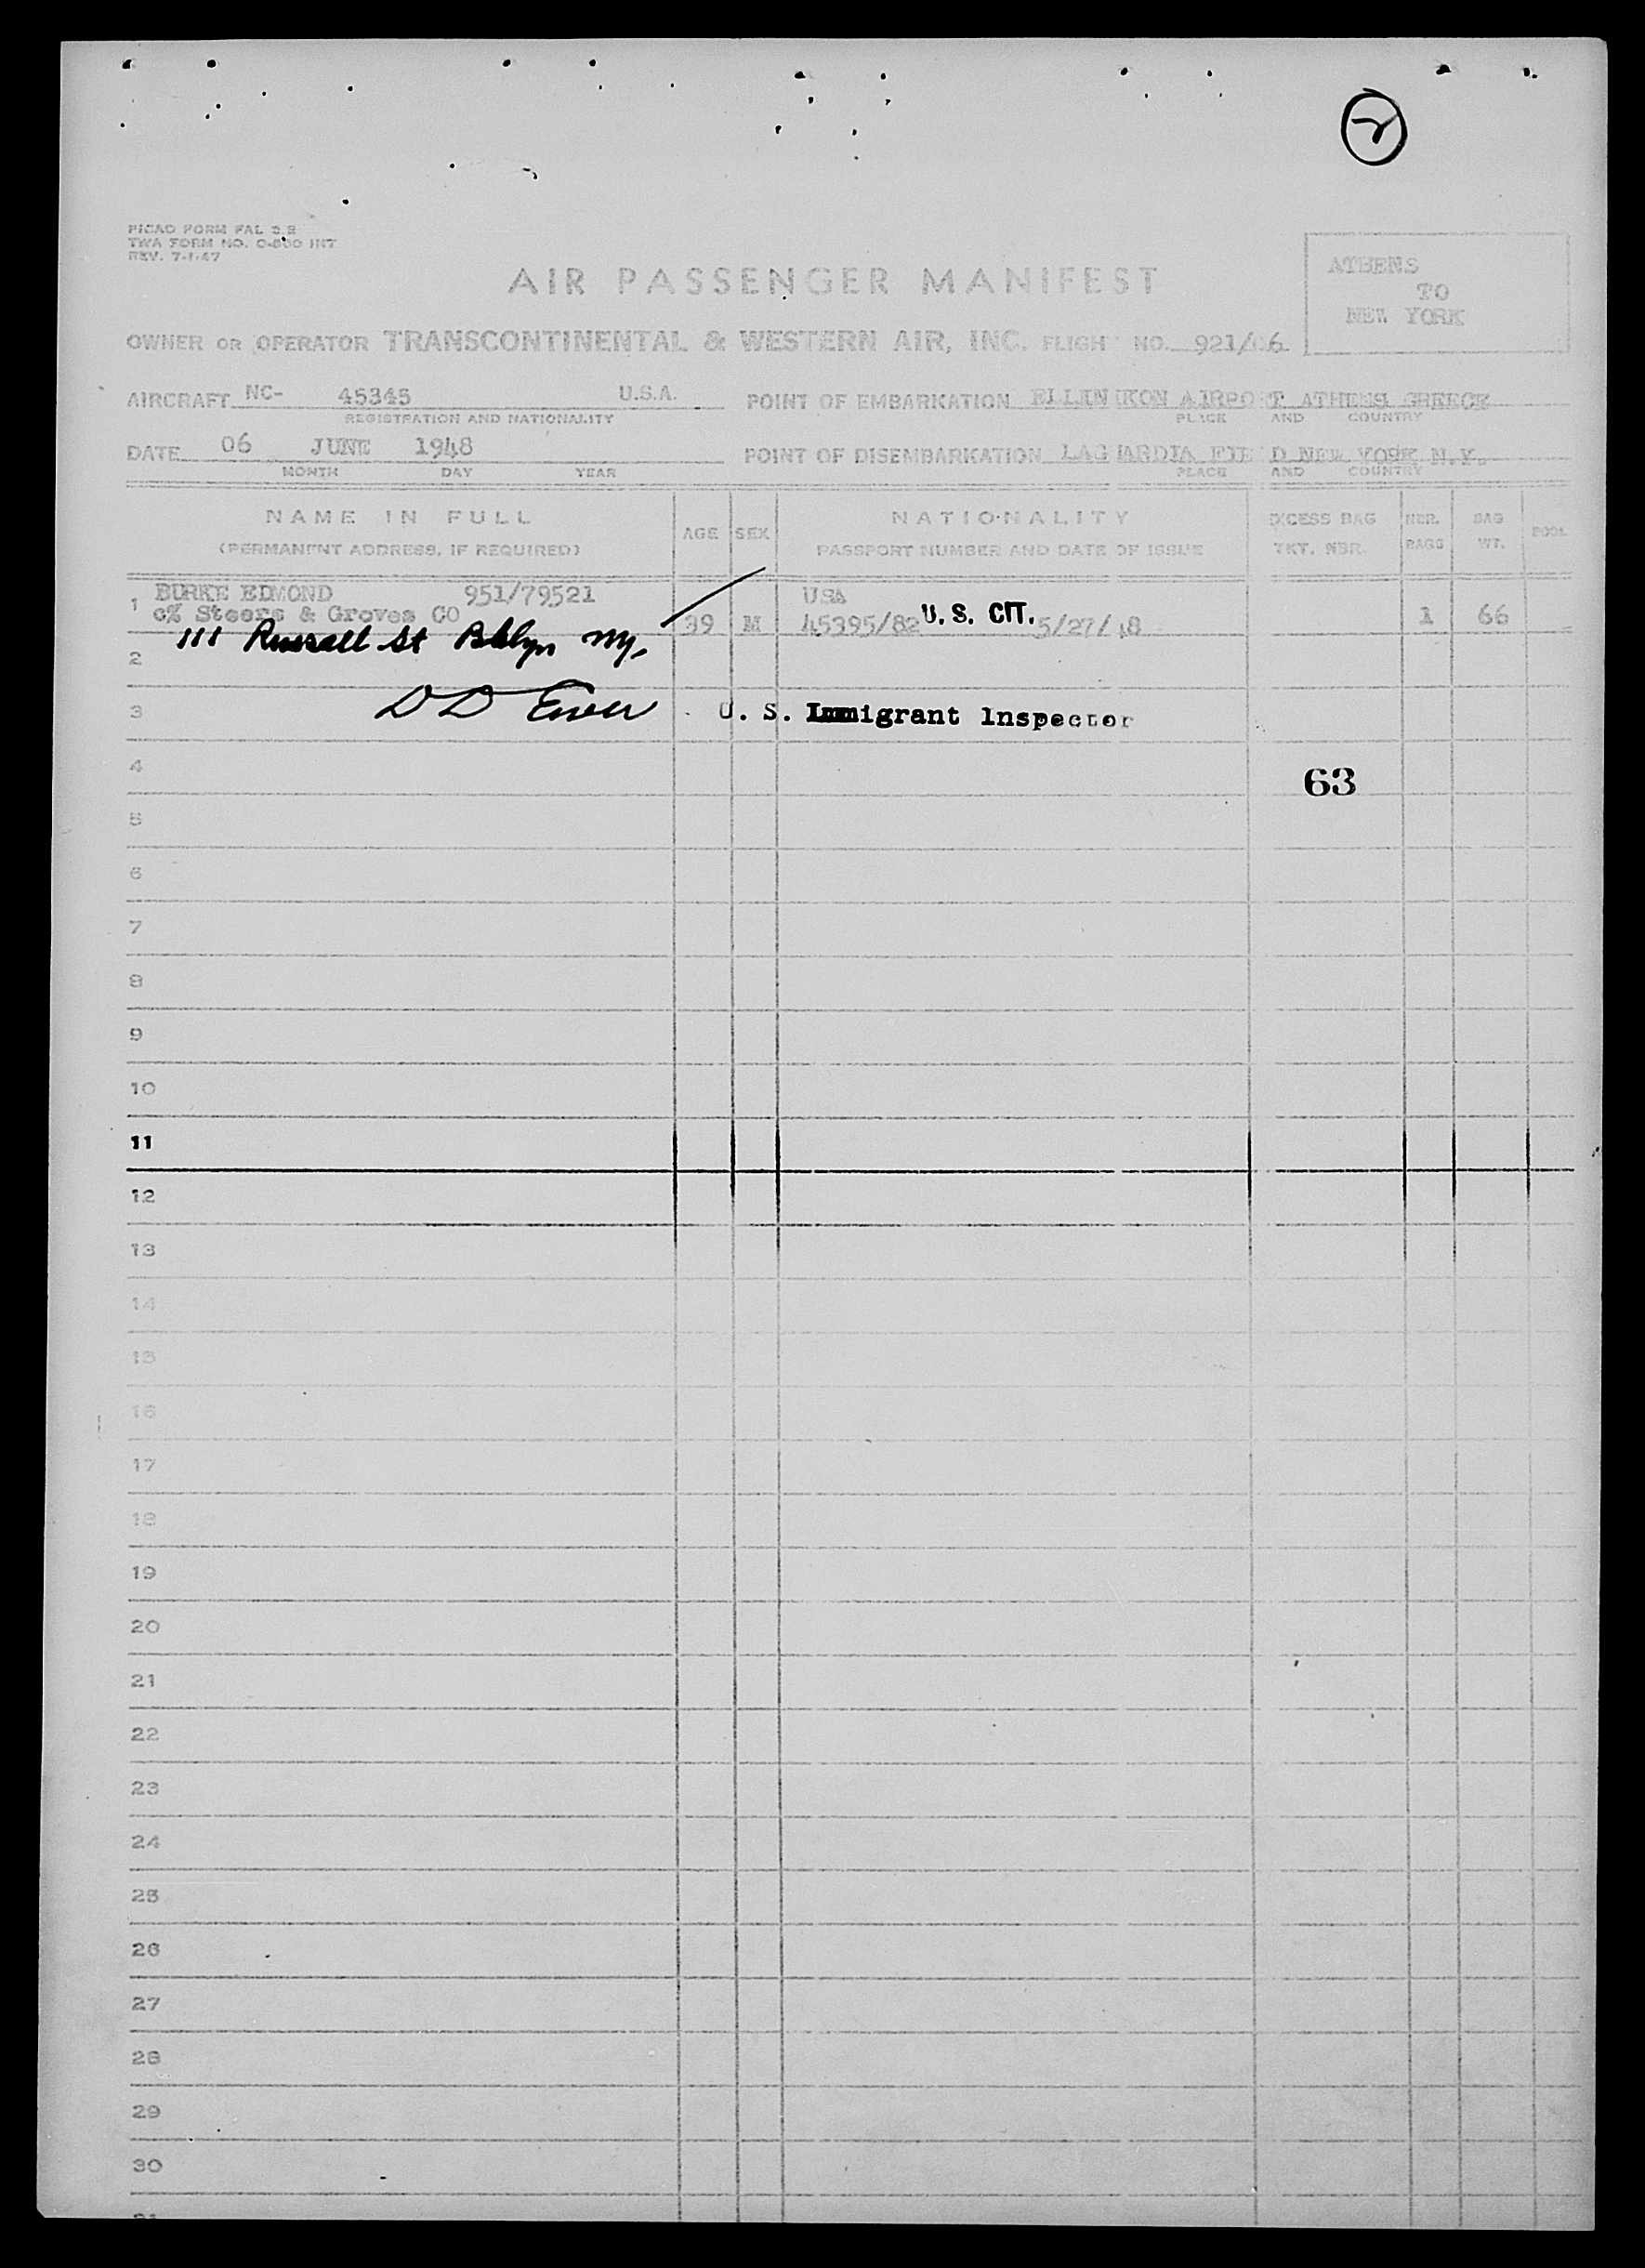 PICAO FORM FAL 2.2
TWA FORM NO. O-800 INT
REV. 7-1-47
AIR PASSENGER MANIFEST
ATHENS
TO
NEW YORK
OWNER OR OPERATOR TRANSCONTINENTAL & WESTERN AIR, INC. FLIGH NO. 921/06
AIRCRAFT NC- 45345 U.S.A.
REGISTRATION AND NATIONALITY
POINT OF EMBARKATION ELLINIKON AIRPORT ATHENS GREECE
PLACE AND COUNTRY
DATE 06 JUNE 1948
MONTH DAY YEAR
POINT OF DISEMBARKATION LAGUARDIA FIELD NEW YORK N.Y.
PLACE AND COUNTRY
NAME IN FULL
(PERMANENT ADDRESS, IF REQUIRED)
AGE SEX
NATIONALITY
PASSPORT NUMBER AND DATE OF ISSUE
EXCESS BAG
TKT. NBR.
NBR.
BAGS
BAG
WT.
POOL
1 BURKE EDMOND 951/79521 USA
c% Steers & Groves CO 39 M 45395/82 U. S. CIT. 5/27/48 1 66
111 St Bklyn NY.
2
3 U. S. Immigrant Inspector
4 63
5
6
7
8
9
10
11
12
13
14
15
16
17
18
19
20
21
22
23
24
25
26
27
28
29
30